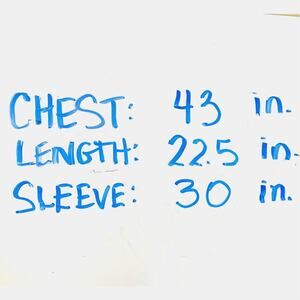 CHEST: 43 in.
LENGTH: 22.5 in.
SLEEVE: 30 in.